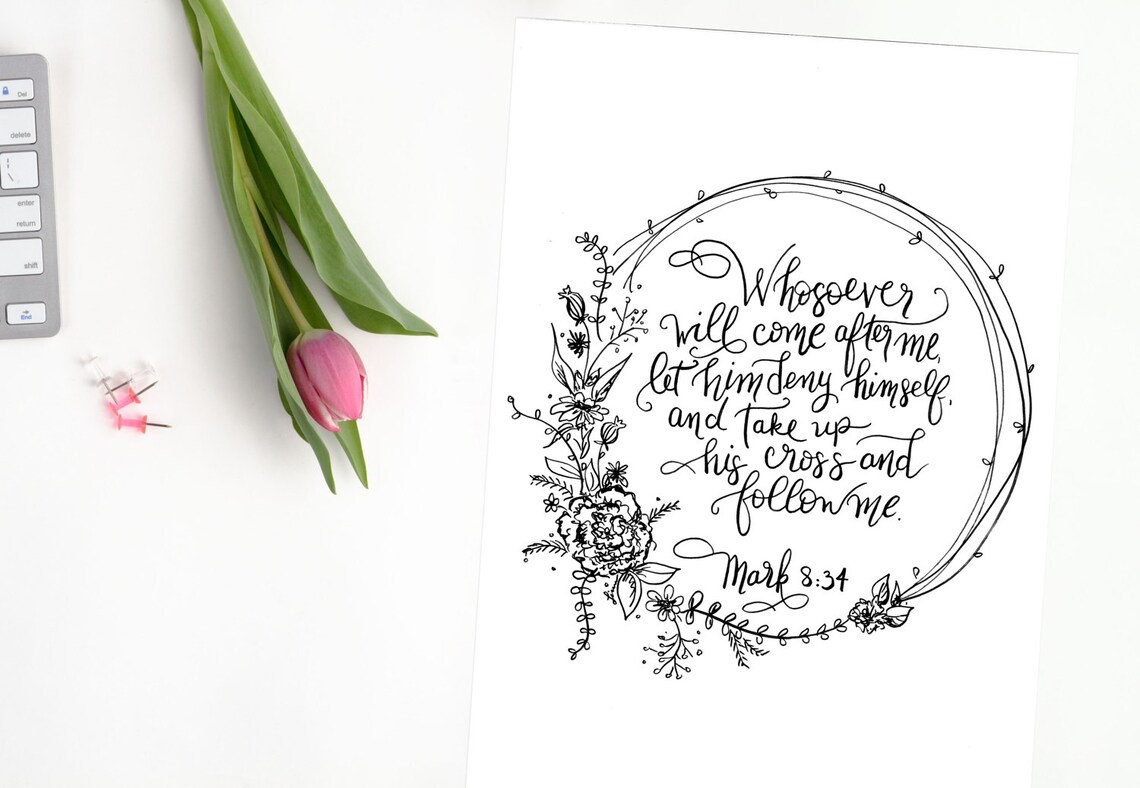 Del
delete
enter
return
shift
End
Whosoever
will come after me,
let him deny himself,
and take up
his cross and
follow me.
Mark 8:34